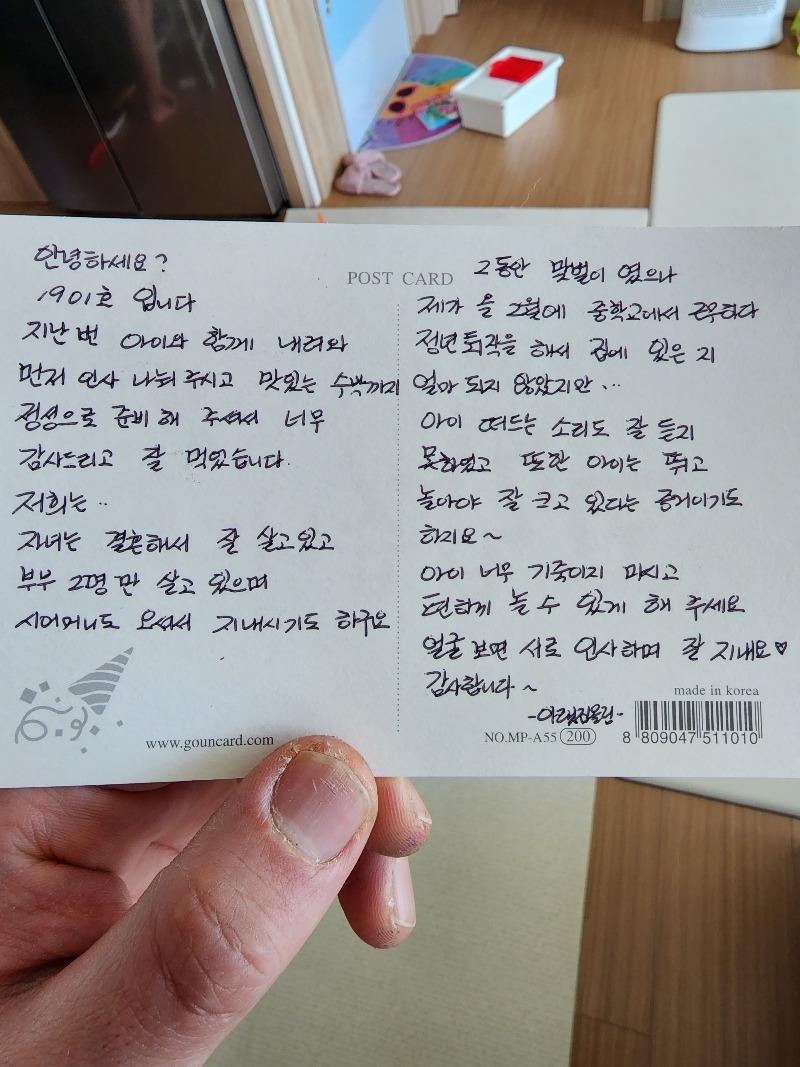 POST CARD
안녕하세요?
1901호 입니다
지난 번 아이와 함께 내려와
먼저 인사 나눠 주시고 맛있는 수박까지
정성으로 준비 해 주셔서 너무
감사드리고 잘 먹었습니다.
저희는..
자녀는 결혼해서 잘 살고 있고
부부 2명 만 살고 있으며
시어머니도 오셔서 지내시기도 하구요
그동안 맞벌이 였으나
제가 올 2월에 중학교에서 근무하다
정년 퇴직을 해서 집에 있은 지
얼마 되지 않았지만...
아이 떠드는 소리도 잘 듣지
못하였고 또한 아이는 뛰고
놀아야 잘 크고 있다는 증거이기도
하지요~
아이 너무 기죽이지 마시고
편하게 놀 수 있게 해 주세요
얼굴 보면 서로 인사하며 잘 지내요♡
감사합니다~
-아랫집올림-
www.gouncard.com
made in korea
NO.MP-A55 200
8 809047 511010